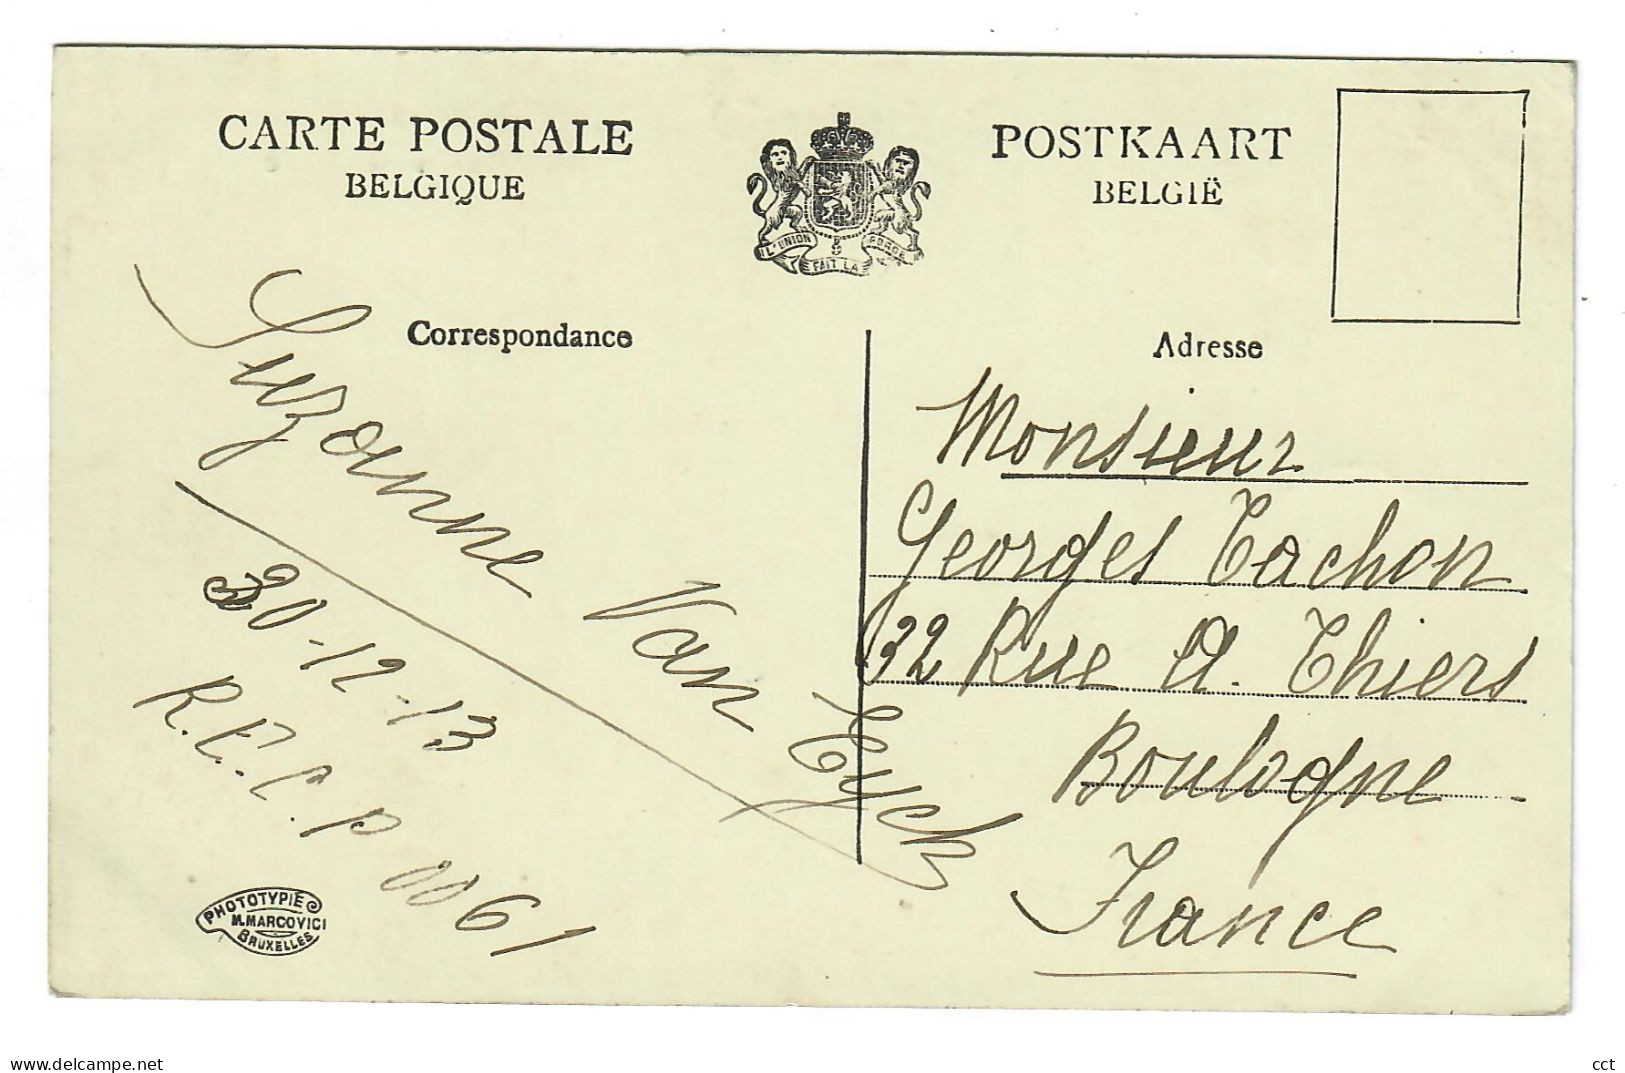 CARTE POSTALE
BELGIQUE
POSTKAART
BELGIË
L'UNION FAIT LA FORCE
Correspondance
Adresse
Suzanne Van Eyck
30-12-13
R.E.C.P 0061
PHOTOTYPIE
M.MARCOVICI
BRUXELLES
Monsieur
Georges Tachon
32 Rue A. Thiers
Boulogne
France
www.delcampe.net
cct